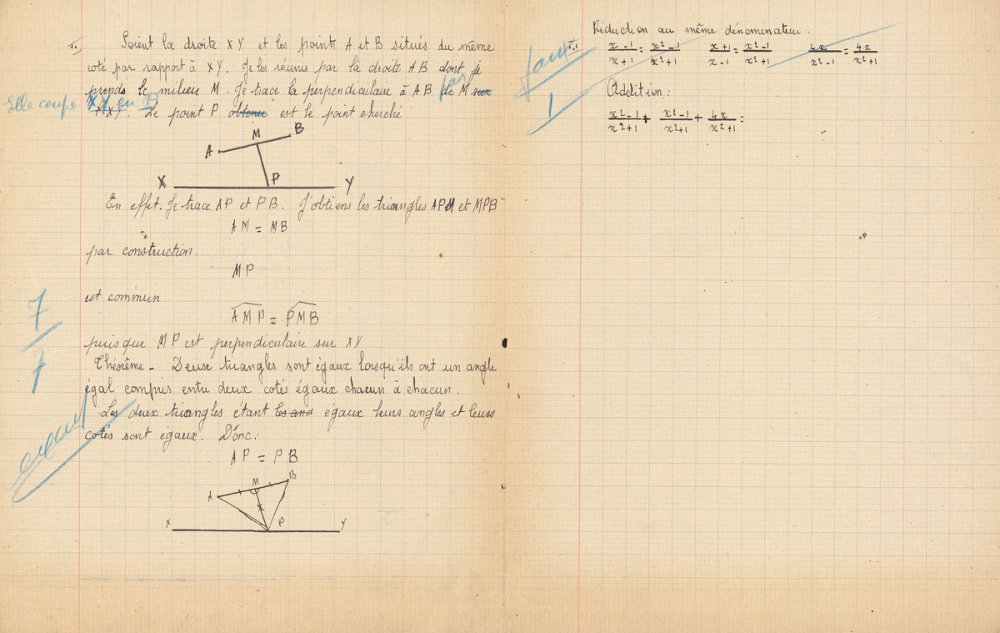 Soient la droite XY et les points A et B situés du même
coté par rapport à XY. Je les réunis par la droite AB dont je
prends le milieu M. Je trace la perpendiculaire à AB par de M sur
Elle coupe XY en P
XY. Le point P obtenu est le point cherché
M B
A
X P Y
En effet. Je trace AP et PB. J'obtiens les triangles APM et MPB
AM = MB
par construction.
MP
est commun
AMP = PMB
7
puisque MP est perpendiculaire sur XY
Théorême - Deux triangles sont égaux lorsqu'ils ont un angle
égal compris entre deux cotés égaux chacun à chacun.
Les deux triangles étant égaux leurs angles et leurs
cotés sont égaux. Donc:
AP = PB
A M B
X P Y
Réduction au même dénominateur:
faux
x-1/x+1 = x²-1/x²+1 x+1/x-1 = x²-1/x²+1 4x/x²-1 = 4x/x²+1
1
Addition:
x²-1/x²+1 + x²-1/x²+1 + 4x/x²+1 =